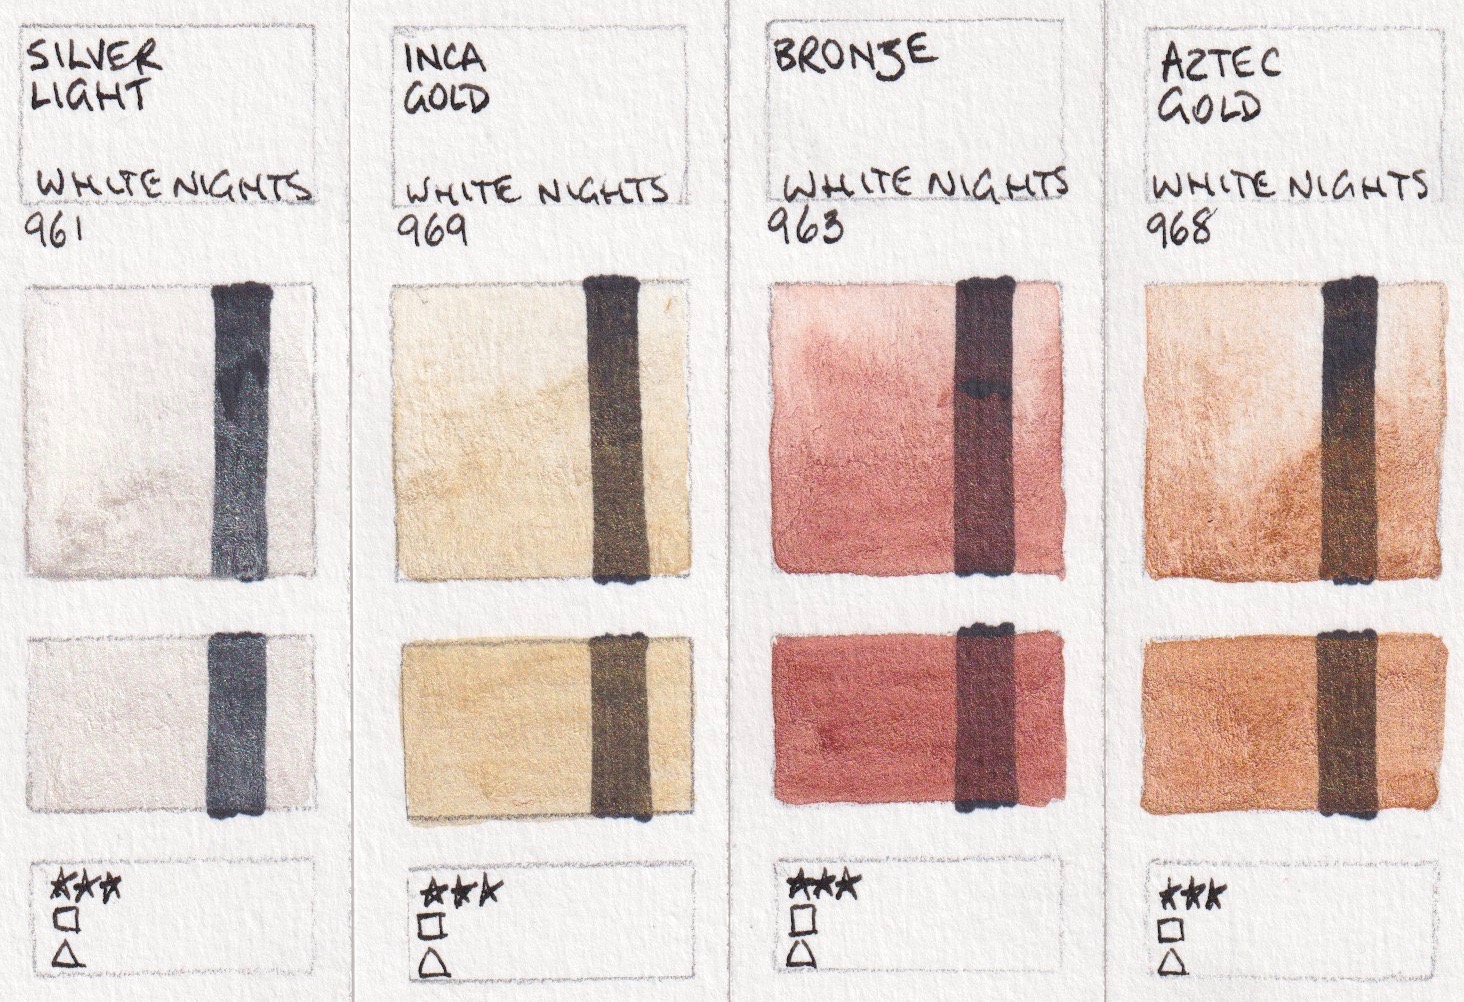 SILVER
LIGHT
WHITE NIGHTS
961
INCA
GOLD
WHITE NIGHTS
969
BRONZE
WHITE NIGHTS
963
AZTEC
GOLD
WHITE NIGHTS
968